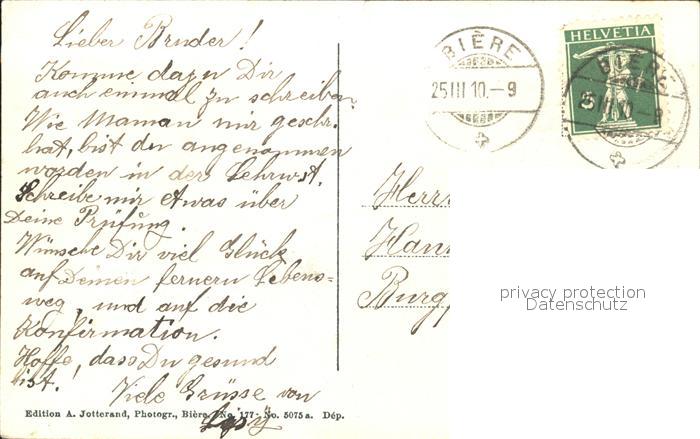 Lieber Bruder!
Komme dazu Dir
auch einmal zu schreiben.
Wie Maman mir geschr.
hat, bist du angenommen
worden in der Lehrwst.
Schreibe mir etwas über
Deine Prüfung.
Wünsche Dir viel Glück
auf Deinen fernern Lebens=
weg, und auf die
Konfirmation.
Hoffe, dass Du gesund
ist!
Viele Grüsse von
Edition A. Jotterand, Photogr., Bière. No. 177- No. 5075a. Dép.
BIÈRE
25 III 10.-9
HELVETIA
5
BIÈRE
III 10.-9
Herrn
Han
Burg
privacy protection
Datenschutz